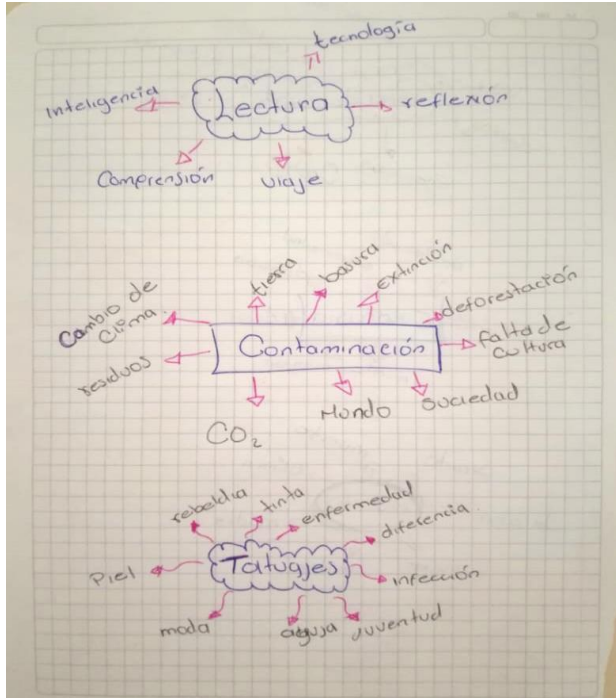 tecnología
Inteligencia
Lectura
reflexión
Comprensión
viaje
tierra
basura
extinción
Cambio de
Clima.
deforestación
Contaminación
falta de
cultura
residuos
CO₂
Mundo
Sociedad
rebeldia
tinta
enfermedad
diferencia
Piel
Tatuajes
infección
moda
aguja
Juventud